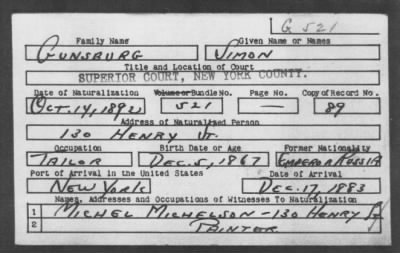 G 521
Family Name Given Name or Names
GUNSBURG SIMON
Title and Location of Court
SUPERIOR COURT, NEW YORK COUNTY.
Date of Naturalization Volume or Bundle No. Page No. Copy of Record No.
OCT. 14, 1892 521 — 89
Address of Naturalized Person
130 HENRY ST.
Occupation Birth Date or Age Former Nationality
TAILOR DEC. 5, 1867 EMPEROR RUSSIA
Port of Arrival in the United States Date of Arrival
NEW YORK DEC. 17, 1883
Names, Addresses and Occupations of Witnesses To Naturalization
1 MICHEL MICHELSON - 130 HENRY ST
2 PAINTER